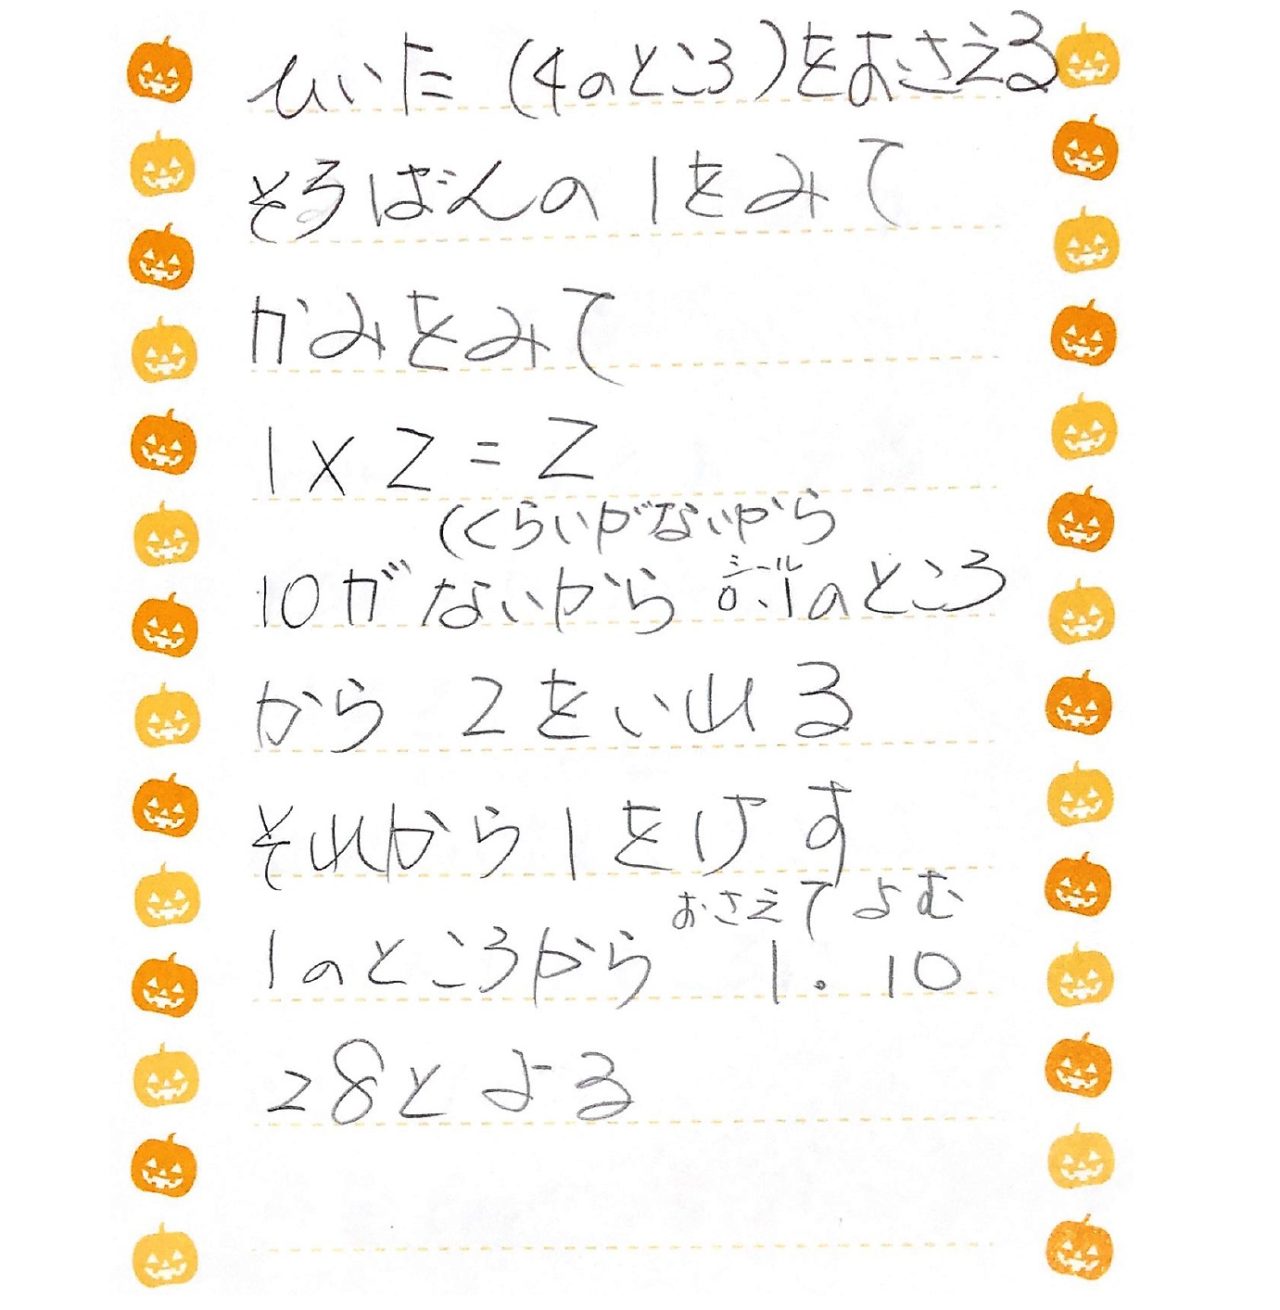 ひいた (4のところ)をおさえる
そろばんの 1をみて
かみをみて
1×2=2
(くらいがないから
10がないから 0.1のところ
シール
から 2をいれる
それから1をけす
おさえて よむ
1のところから 1.10
28とよる